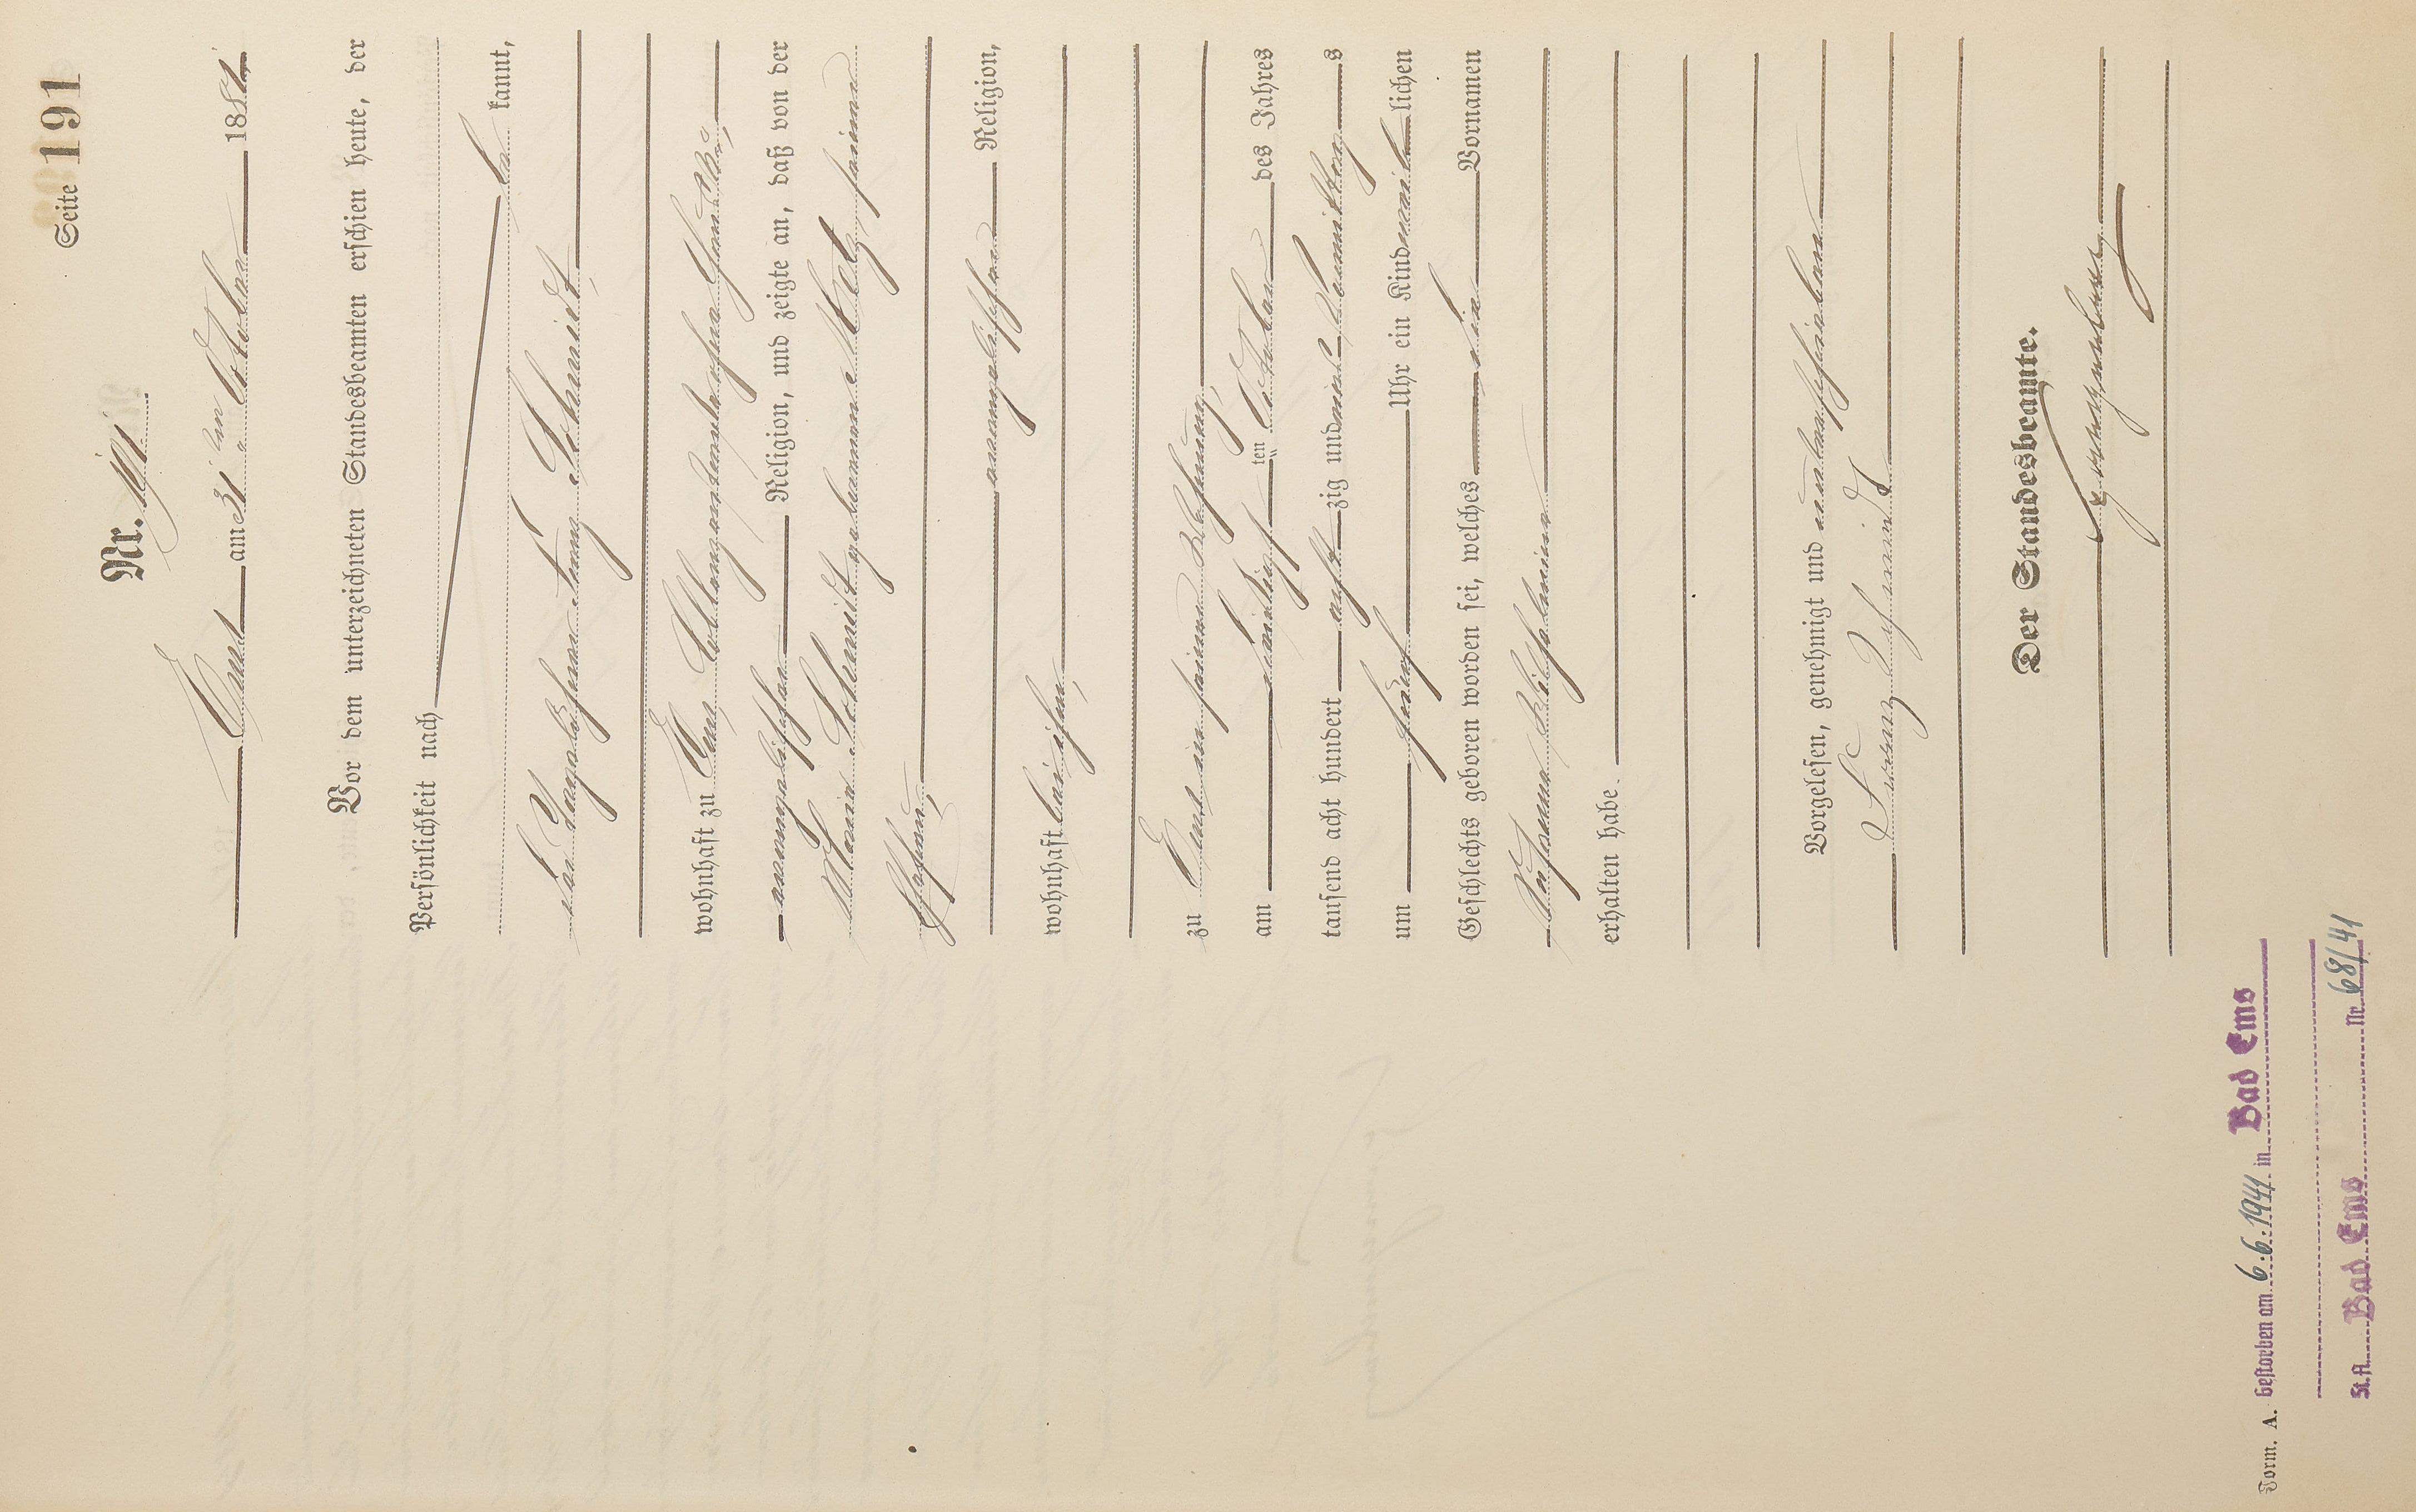 Seite 191
Nr. 191.
Ems am 31ten October 1881.
Vor dem unterzeichneten Standesbeamten erschien heute, der
Persönlichkeit nach
be kannt,
der Tagelöhner Franz Schmidt,
wohnhaft zu Ems,
evangelischer Religion, und zeigte an, daß von der
Maria Schmidt geborenen Metz, seiner
Ehefrau,
evangelischer Religion,
wohnhaft bei ihm,
zu Ems in seiner Wohnung,
am October des Jahres
tausend acht hundert acht zig und eins Vormittags
um Uhr ein Kind weiblichen
Geschlechts geboren worden sei, welches die Vornamen
Johanna Wilhelmine
erhalten habe.
Vorgelesen, genehmigt und unterschrieben
Franz Schmidt
Der Standesbeamte.
Form. A. Gestorben am 6.6.1941 in Bad Ems
St.A. Bad Ems Nr. 68/41